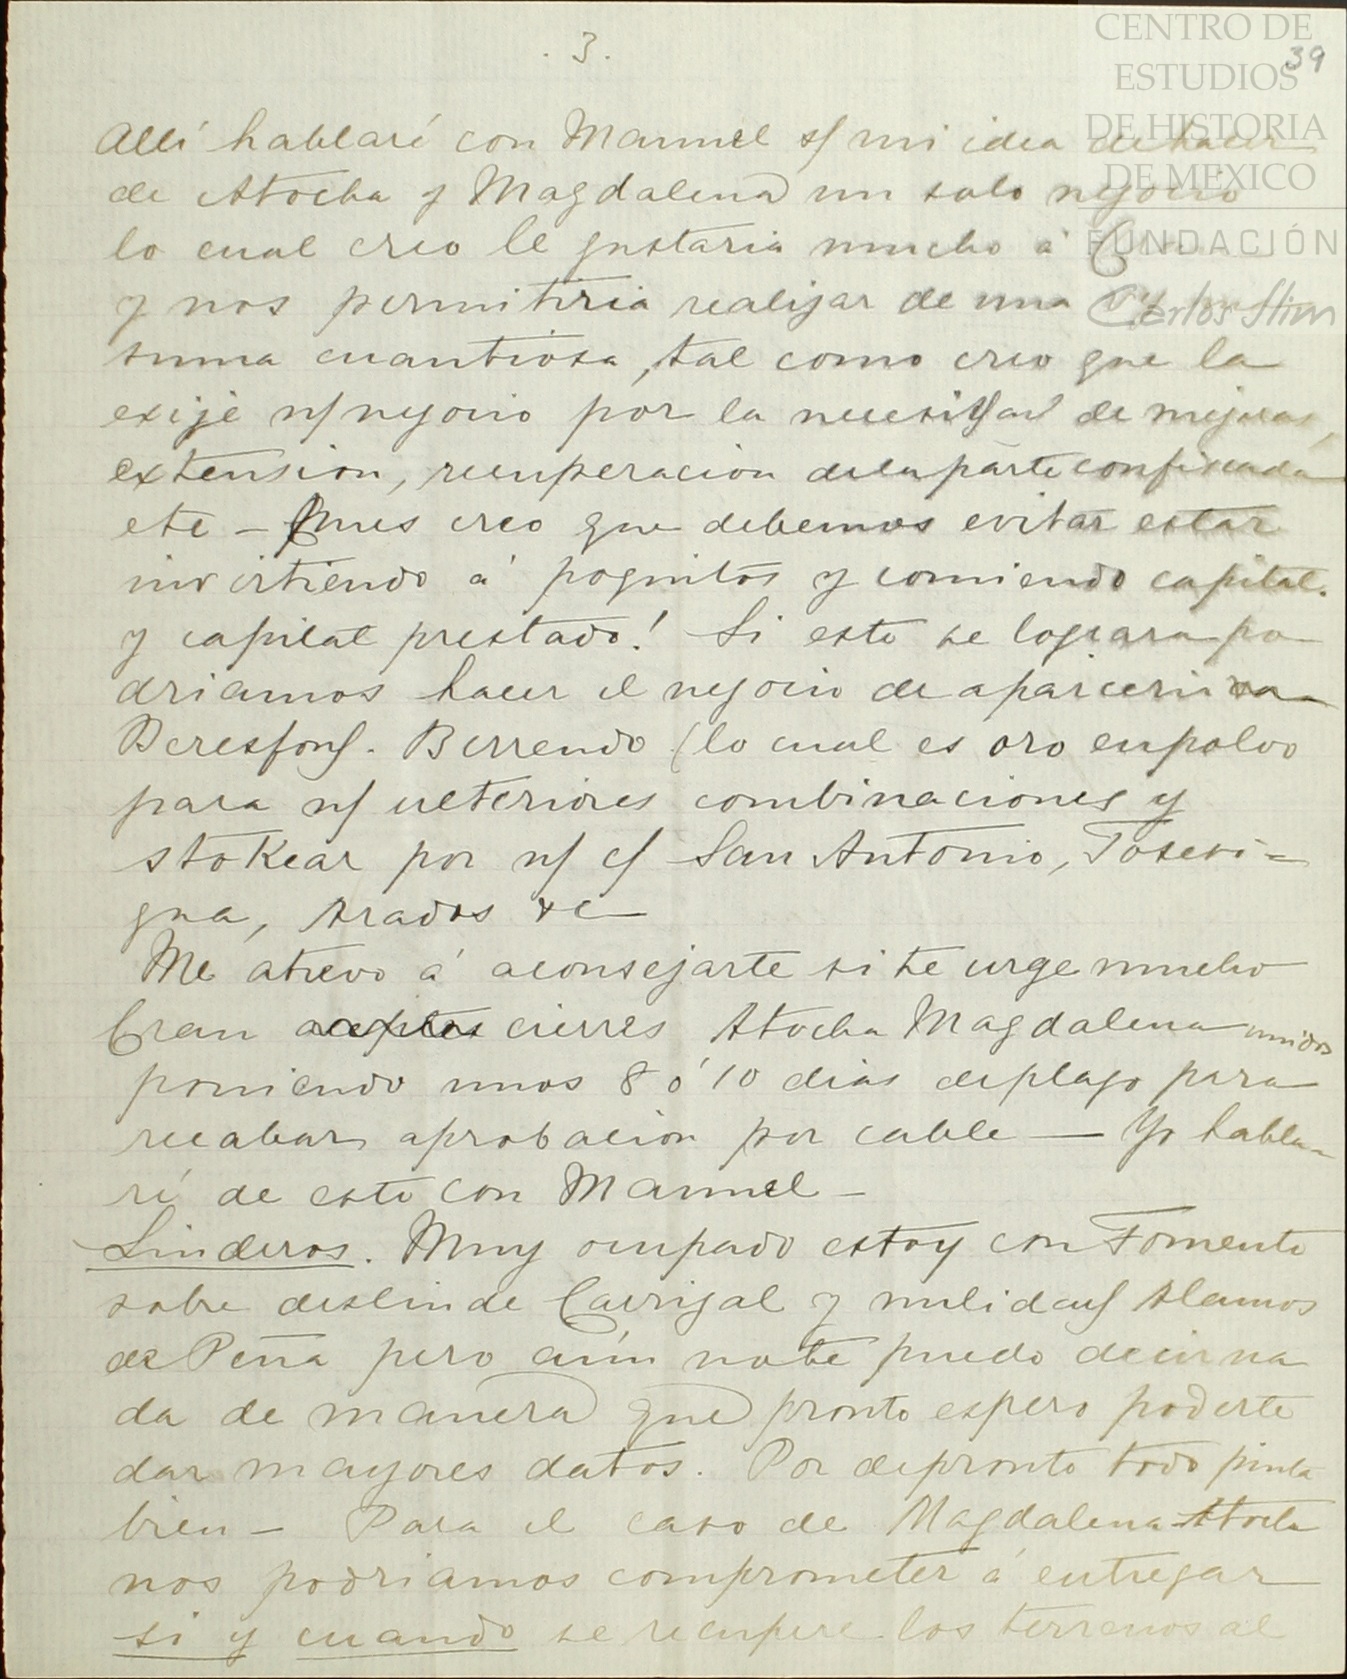 . 3 .
39
CENTRO DE
ESTUDIOS
DE HISTORIA
DE MEXICO
FUNDACIÓN
Carlos Slim
Allí hablaré con Manuel s/ mi idea de hacer
de Atocha y Magdalena un solo negocio
lo cual creo le gustaria mucho á
y nos permitiria realizar de una
suma cuantiosa, tal como creo que la
exije n/ negocio por la necesidad de mejoras,
extension, recuperacion de la parte confiscada
etc – Pues creo que debemos evitar estar
invirtiendo á poquitos y comiendo capital.
y capital prestado! Si esto se lograra po
driamos hacer el negocio de aparceria
Beresford. Berrendo (lo cual es oro en polvo
para n/ ulteriores combinaciones y
stokear por n/ c/ San Antonio, Tosesi-
gua, Arados &c
Me atrevo á aconsejarte si te urge mucho
Crean cierres Atocha Magdalena unidos
poniendo unos 8 ó 10 dias de plazo para
recabar aprobacion por cable — Yo habla-
ré de esto con Manuel –
Linderos. Muy ocupado estoy con Fomento
sobre deslinde Carrizal y nulidad Alamos
de Peña pero aún no te puedo decir na
da de manera que pronto espero poderte
dar mayores datos. Por de pronto todo pinta
bien – Para el caso de Magdalena-Atocha
nos podriamos comprometer á entregar
si y cuando se recupere los terrenos al